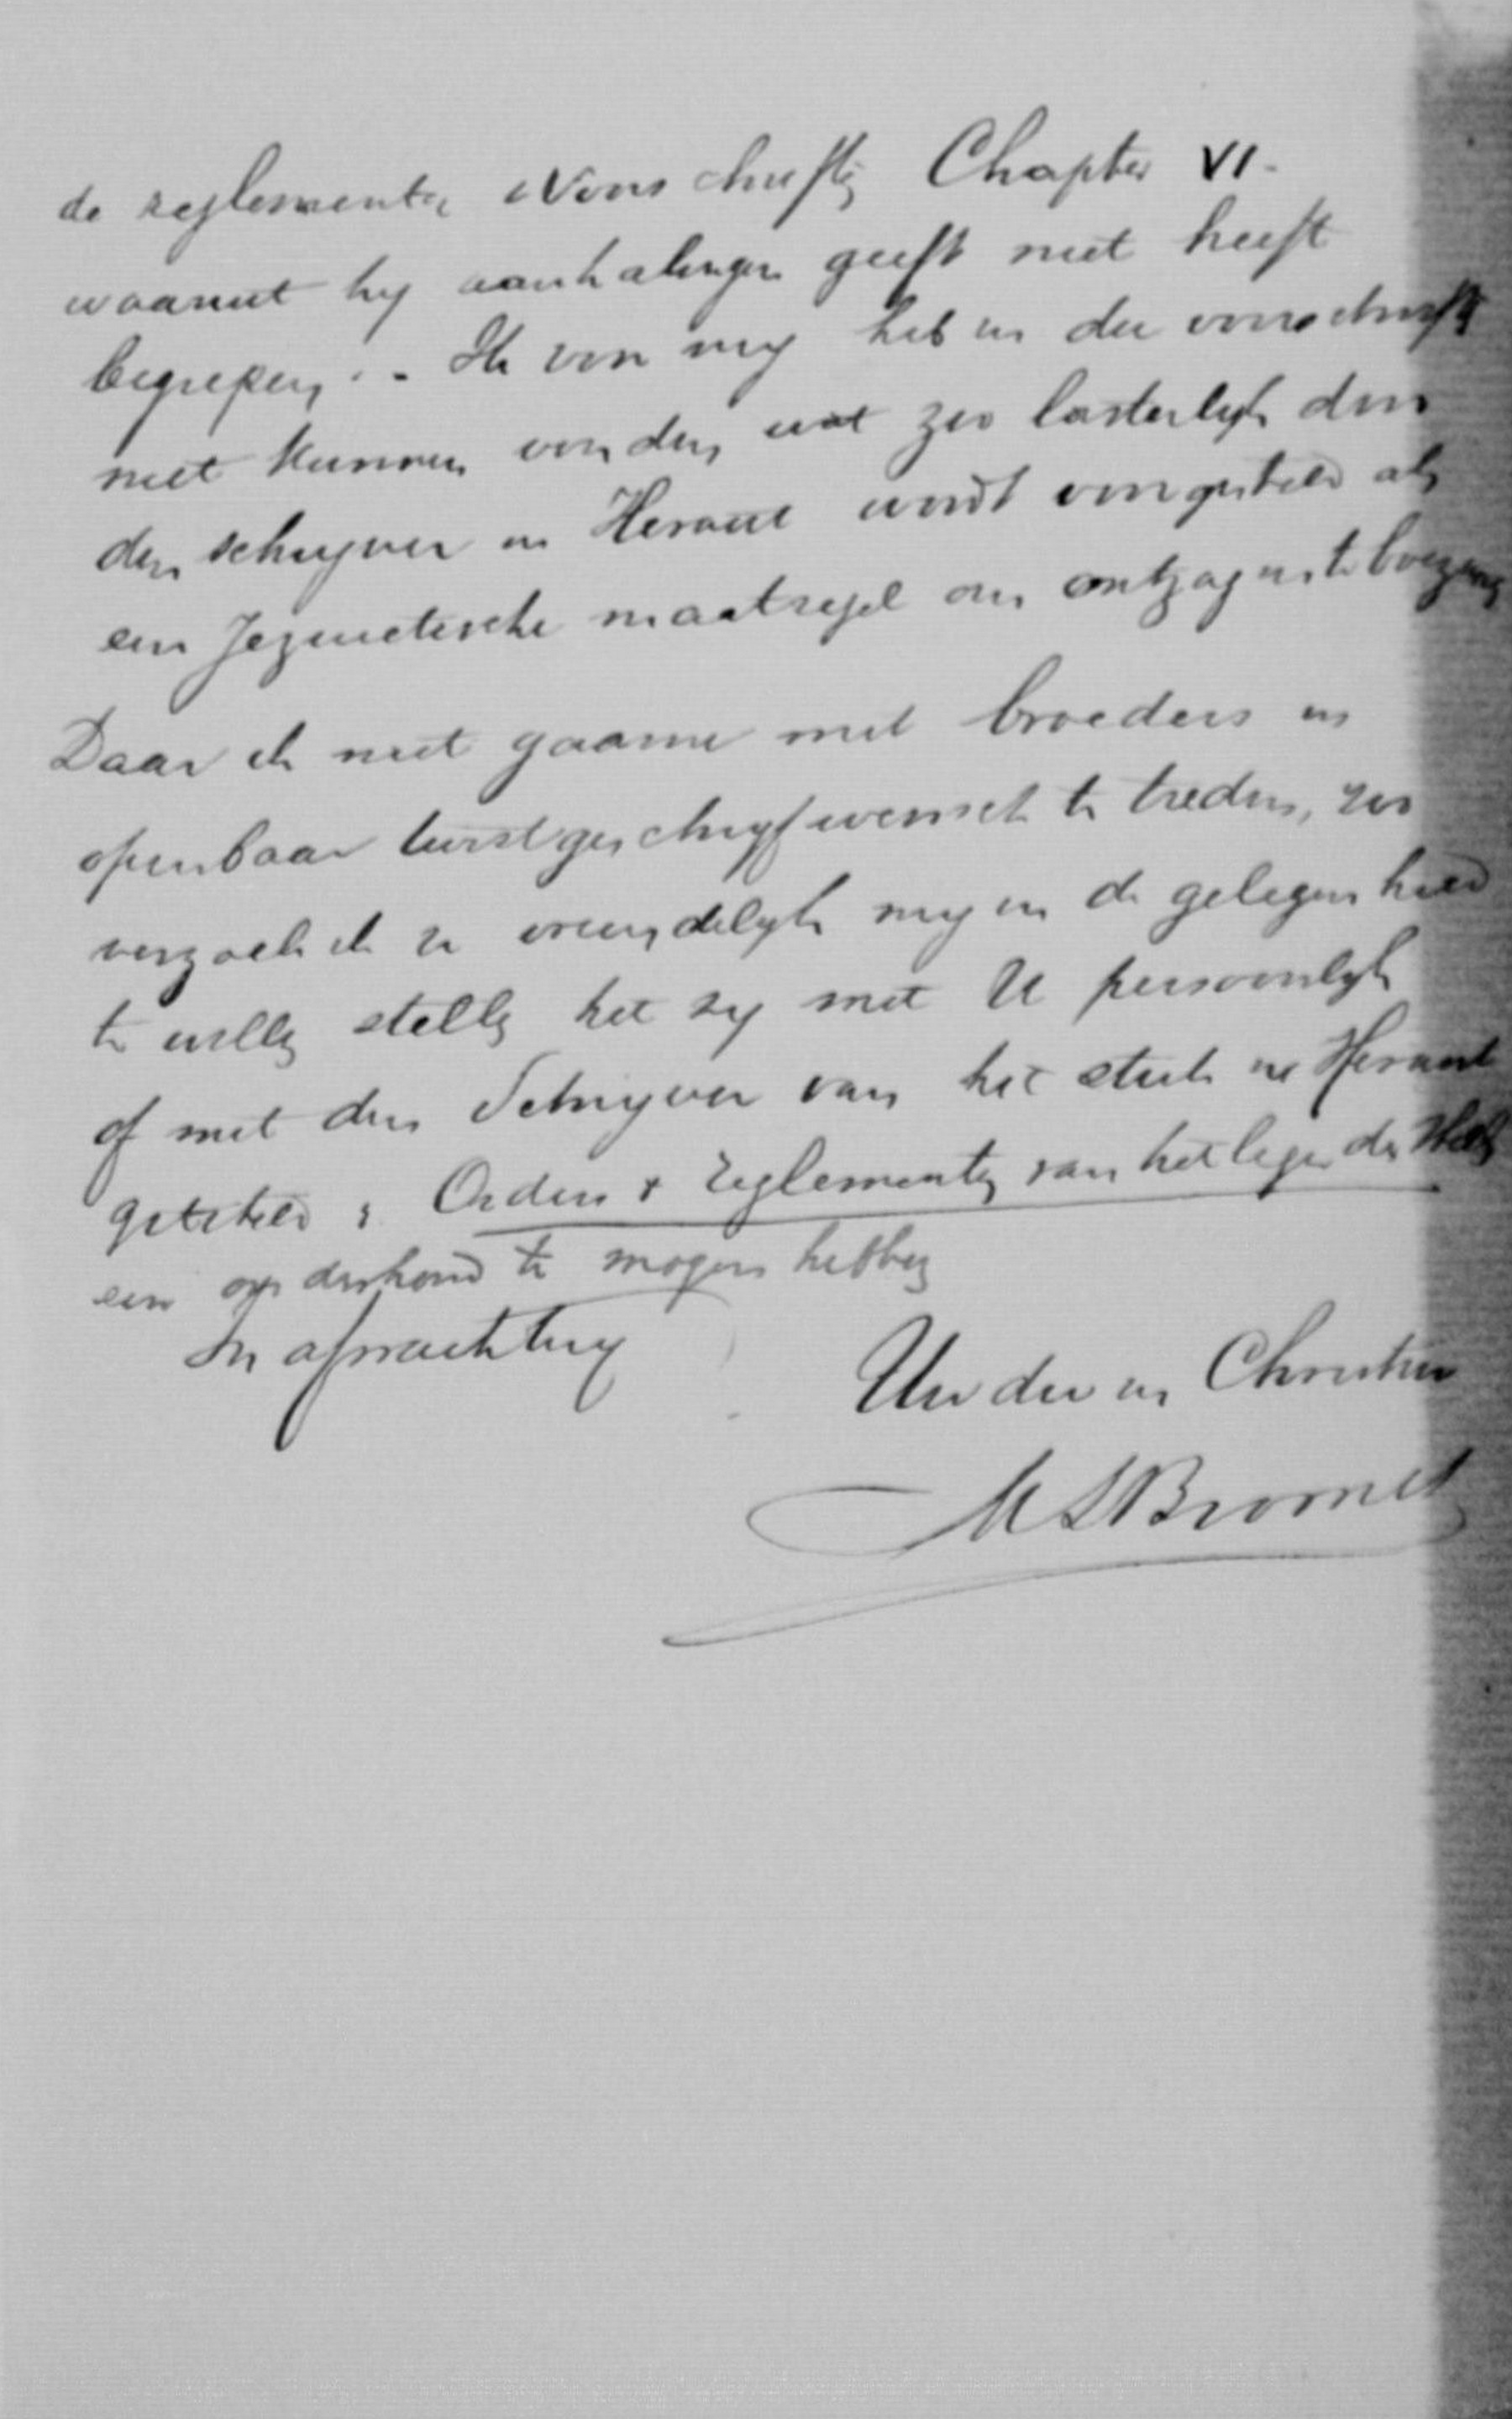 de reglementen & Voorschriften Chapter VI.
waaruit hij aanhalingen geeft niet heeft
begrepen. - Ik voor mij heb in die voorschrift
niet kunnen vinden, wat zoo lasterlijk door
den schrijver in Heraut wordt voorgesteld als
een Jezuietische maatregel om ontzag in te boezemen
Daar ik niet gaarne met broeders in
openbaar twistgeschrijf wensch te treden, zoo
verzoek ik u vriendelijk mij in de gelegenheid
te willen stellen het zij met U persoonlijk
of met den Schrijver van het stuk in Heraut
getiteld: Orders & reglementen van het leger des Heils
een onderhoud te mogen hebben
In afwachting
Uw dw in Christus
M S Bromet